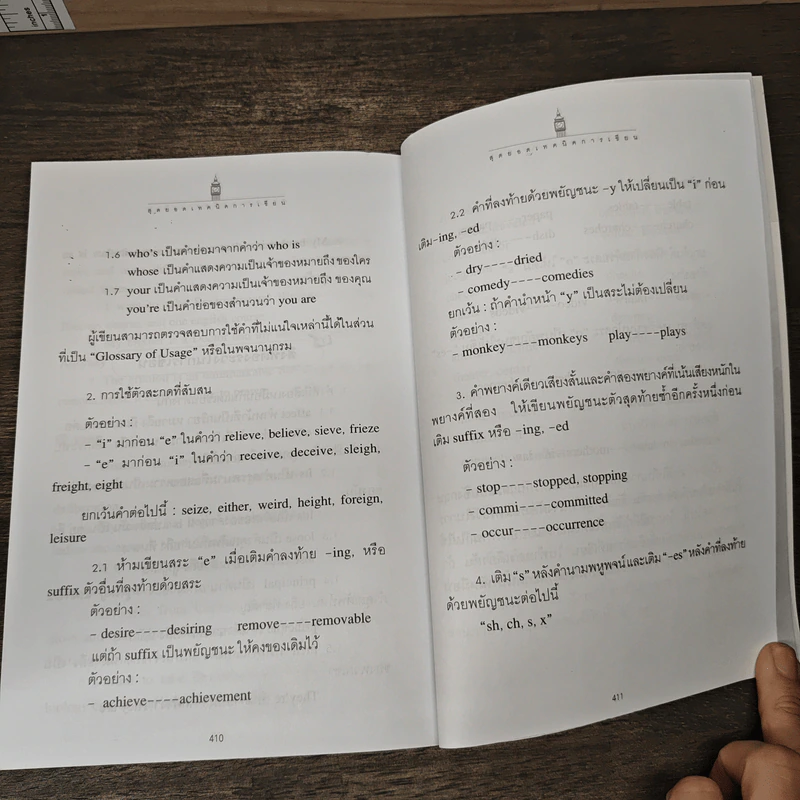 inches
สุดยอดเทคนิคการเขียน
1.6 who's เป็นคำย่อมาจากคำว่า who is
whose เป็นคำแสดงความเป็นเจ้าของหมายถึง ของใคร
1.7 your เป็นคำแสดงความเป็นเจ้าของหมายถึง ของคุณ
you're เป็นคำย่อของสำนวนว่า you are
ผู้เขียนสามารถตรวจสอบการใช้คำที่ไม่แน่ใจเหล่านี้ได้ในส่วน
ที่เป็น “Glossary of Usage” หรือในพจนานุกรม
2. การใช้ตัวสะกดที่สับสน
ตัวอย่าง :
– “i” มาก่อน “e” ในคำว่า relieve, believe, sieve, frieze
– “e” มาก่อน “i” ในคำว่า receive, deceive, sleigh,
freight, eight
ยกเว้นคำต่อไปนี้ : seize, either, weird, height, foreign,
leisure
2.1 ห้ามเขียนสระ “e” เมื่อเติมคำลงท้าย –ing, หรือ
suffix ตัวอื่นที่ลงท้ายด้วยสระ
ตัวอย่าง :
– desire----desiring remove----removable
แต่ถ้า suffix เป็นพยัญชนะ ให้คงของเดิมไว้
ตัวอย่าง :
– achieve----achievement
410
สุดยอดเทคนิคการเขียน
2.2 คำที่ลงท้ายด้วยพยัญชนะ –y ให้เปลี่ยนเป็น “i” ก่อน
เติม–ing, –ed
ตัวอย่าง :
– dry----dried
– comedy----comedies
ยกเว้น : ถ้าคำนำหน้า “y” เป็นสระไม่ต้องเปลี่ยน
ตัวอย่าง :
– monkey----monkeys play----plays
3. คำพยางค์เดียวเสียงสั้นและคำสองพยางค์ที่เน้นเสียงหนักใน
พยางค์ที่สอง ให้เขียนพยัญชนะตัวสุดท้ายซ้ำอีกครั้งหนึ่งก่อน
เติม suffix หรือ –ing, –ed
ตัวอย่าง :
– stop----stopped, stopping
– commi----committed
– occur----occurrence
4. เติม “s” หลังคำนามพหูพจน์ และเติม “–es” หลังคำที่ลงท้าย
ด้วยพยัญชนะต่อไปนี้
“sh, ch, s, x”
411